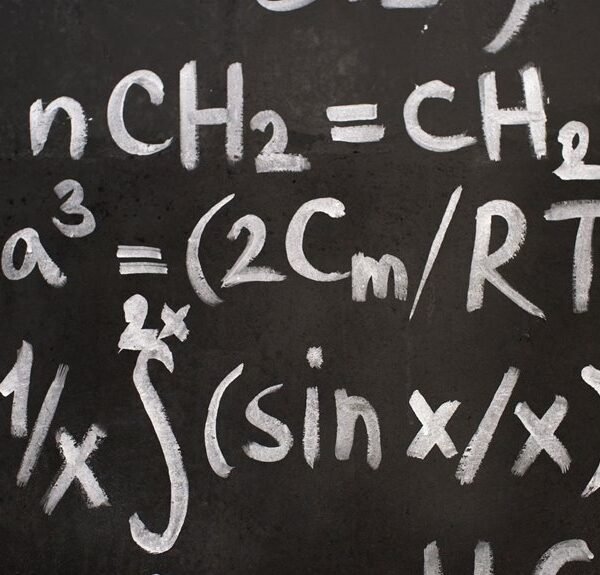 nCH₂=CH₂
a³=(2Cm/RT
1/x∫²ˣ(sin x/x)